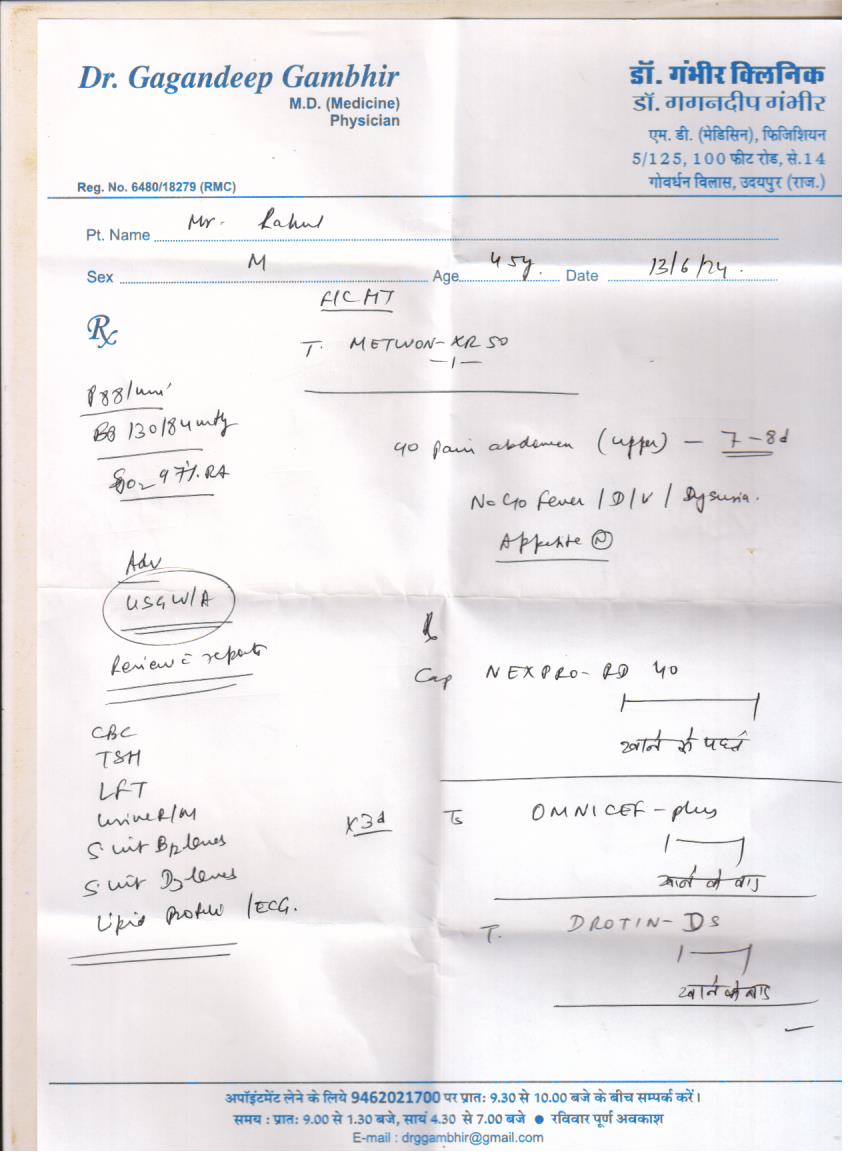 Dr. Gagandeep Gambhir
M.D. (Medicine)
Physician
Reg. No. 6480/18279 (RMC)
डॉ. गंभीर क्लिनिक
डॉ. गगनदीप गंभीर
एम. डी. (मेडिसिन), फिजिशियन
5/125, 100 फीट रोड, से.14
गोवर्धन विलास, उदयपुर (राज.)
Pt. Name Mr. Rahul
Sex M Age 45y. Date 13/6/24.
HT
Rx
T. METWON-XR 50
—1—
P 88/min
BP 130/84 mmHg
SpO2 97% RA
c/o pain abdomen (upper) — 7-8d
No c/o Fever / D / V / Dysuria.
Appetite (N)
Adv
USG W/A
Review c reports
CBC
TSH
LFT
Urine R/M
S. Vit B12 levels
S. Vit D3 levels
Lipid Profile / ECG.
Cap NEXPRO-RD 40
खाने से पहले
x 3d
OMNICEF-plus
खाने के बाद
T. DROTIN-DS
खाने के बाद
अपॉइंटमेंट लेने के लिये 9462021700 पर प्रातः 9.30 से 10.00 बजे के बीच सम्पर्क करें।
समय : प्रातः 9.00 से 1.30 बजे, सायं 4.30 से 7.00 बजे ● रविवार पूर्ण अवकाश
E-mail : drggambhir@gmail.com